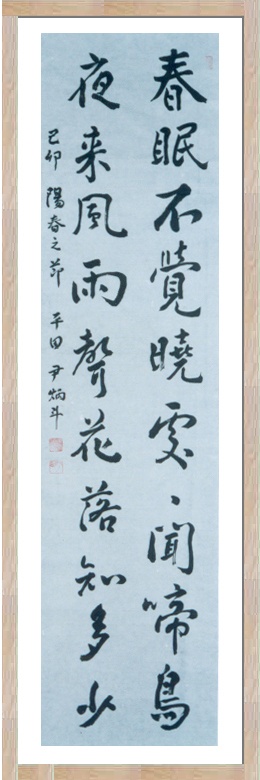 春眠不覺曉處〻聞啼鳥
夜来風雨聲花落知多少
己卯陽春之節 平田 尹炳斗